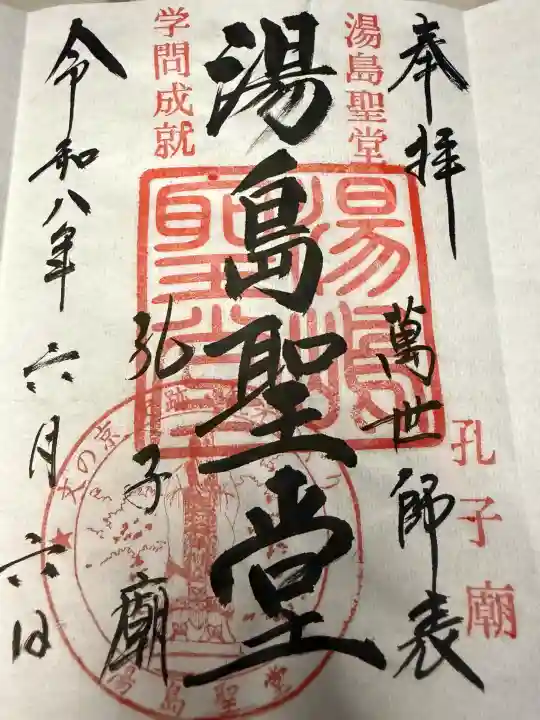 奉拝
湯島聖堂
萬世師表
孔子廟
湯島聖堂
湯島聖堂
孔子廟
学問成就
令和八年六月六日
文の京
跡
湯島聖堂